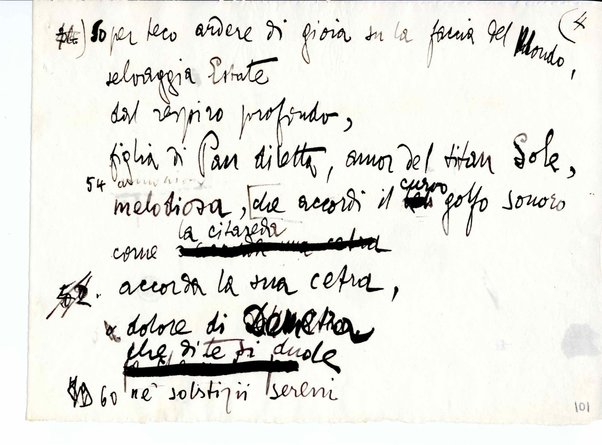 (4
50 per teco ardere di gioia su la faccia del Mondo,
selvaggia Estate
dal respiro profondo,
figlia di Pan diletta, amor del titan Sole,
54
melodiosa, che accordi il curvo golfo sonoro
come la citareda
accorda la sua cetra,
dolore di Demetra
che di te si duole
60 ne' solstizii sereni
101